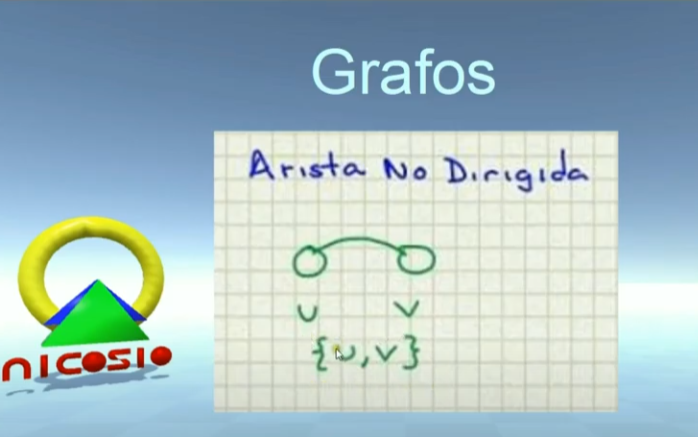 Grafos
Arista No Dirigida
u v
{u, v}
nicosio